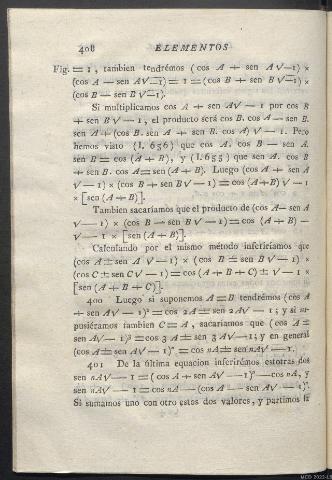 408 ELEMENTOS
Fig. = 1, tambien tendrémos (cos A + sen A√—1) ×
(cos A — sen A√—1) = 1 = (cos B + sen B√—1) ×
(cos B — sen B√—1).
Si multiplicamos cos A + sen A√ — 1 por cos B
+ sen B√ — 1, el producto será cos B. cos A — sen B.
sen A + (cos B. sen A + sen B. cos A) √ — 1. Pero
hemos visto (I. 656) que cos A. cos B — sen A.
sen B = cos (A + B), y (I. 655) que sen A. cos B
+ sen B. cos A = sen (A + B). Luego (cos A + sen A
√ — 1) × (cos B + sen B√ — 1) = cos (A + B) √ — 1
× [sen (A + B)].
Tambien sacaríamos que el producto de (cos A — sen A
√ — 1) × (cos B — sen B√ — 1) = cos (A + B) —
√ — 1 × [sen (A + B)].
Calculando por el mismo método inferiríamos que
(cos A ± sen A √ — 1) × (cos B ± sen B√ — 1) ×
(cos C ± sen C√ — 1) = cos (A + B + C) ± √ — 1 ×
[sen (A + B + C)].
400 Luego si suponemos A = B tendrémos (cos A
+ sen A√ — 1)² = cos 2A ± sen 2A√ — 1; y si su-
pusiéramos tambien C = A, sacaríamos que (cos A ±
sen A√ — 1)³ = cos 3 A ± sen 3 A√ — 1; y en general
(cos A ± sen A√ — 1)ⁿ = cos nA ± sen nA√ — 1.
401 De la última equacion inferirémos estotras dos
sen nA√ — 1 = (cos A + sen A√ — 1)ⁿ — cos nA, y
sen nA√ — 1 = cos nA — (cos A — sen A√ — 1)ⁿ.
Si sumamos uno con otro estos dos valores, y partimos la